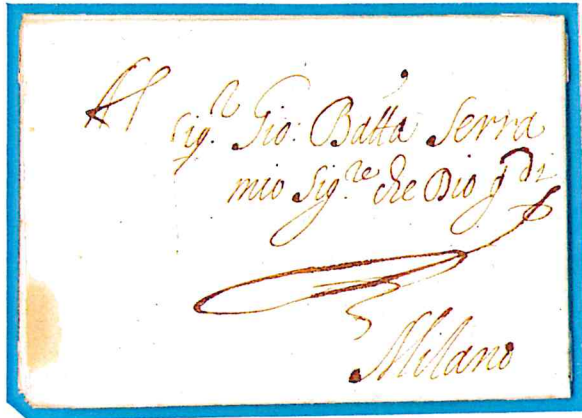 Al
Sig.r Gio: Batta Serra
mio Sig.re che Dio g.di
Milano